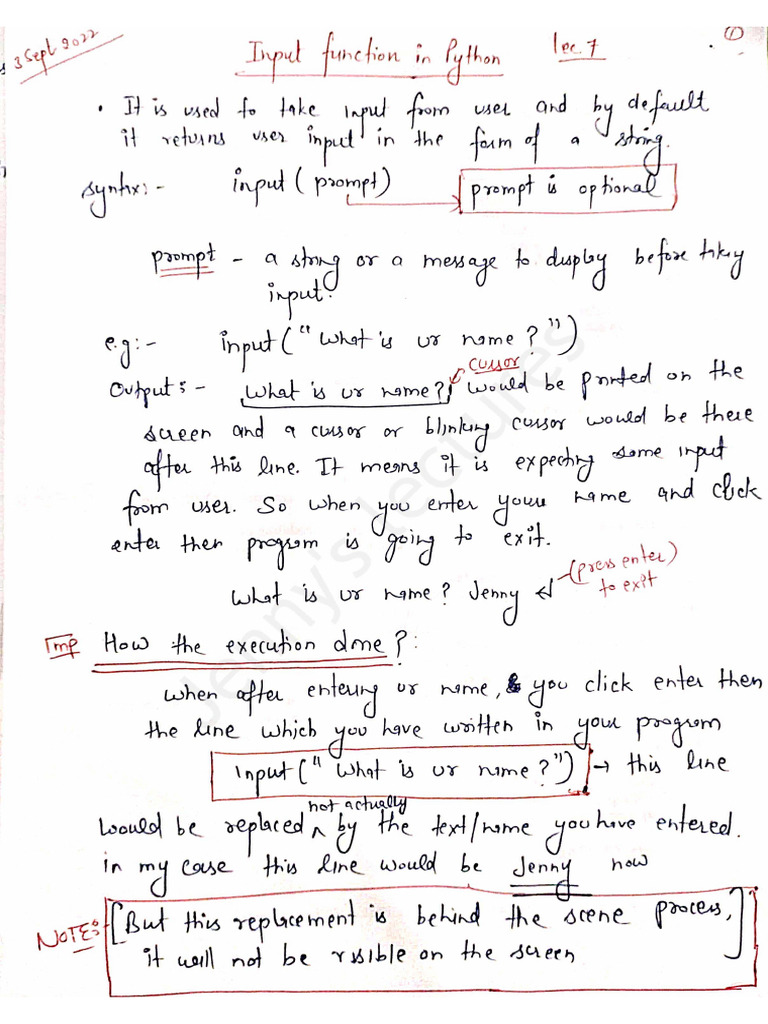 3 Sept 2022
Input function in Python lec. 7
①
• It is used to take input from user and by default
it returns user input in the form of a string.
syntx:- input (prompt) prompt is optional
prompt - a string or a message to display before takiy
input.
e.g:- input ("What is ur name?")
Output:- What is ur name?| cursor would be printed on the
screen and a cursor or blinking cursor would be there
after this line. It means it is expecting some input
from user. So when you enter your name and click
enter then program is going to exit.
What is ur name? Jenny ↵ (press enter)
to exit
Imp How the execution done?:
when after entering ur name, you click enter then
the line which you have written in your program
input ("What is ur name?") → this line
not actually
would be replaced ^ by the text/name you have entered.
in my case this line would be Jenny now
NOTE:- [But this replacement is behind the scene process,
it will not be visible on the screen]
Jenny's Lectures